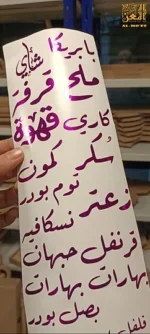 المعز
AL-MO'EZ
بابريكا شاي
ملح قرفة
كاري قهوة
سكر كمون
ثوم بودر
زعتر نسكافيه
قرنفل حبهان
بهارات بهارات
بصل بودر
فلفل